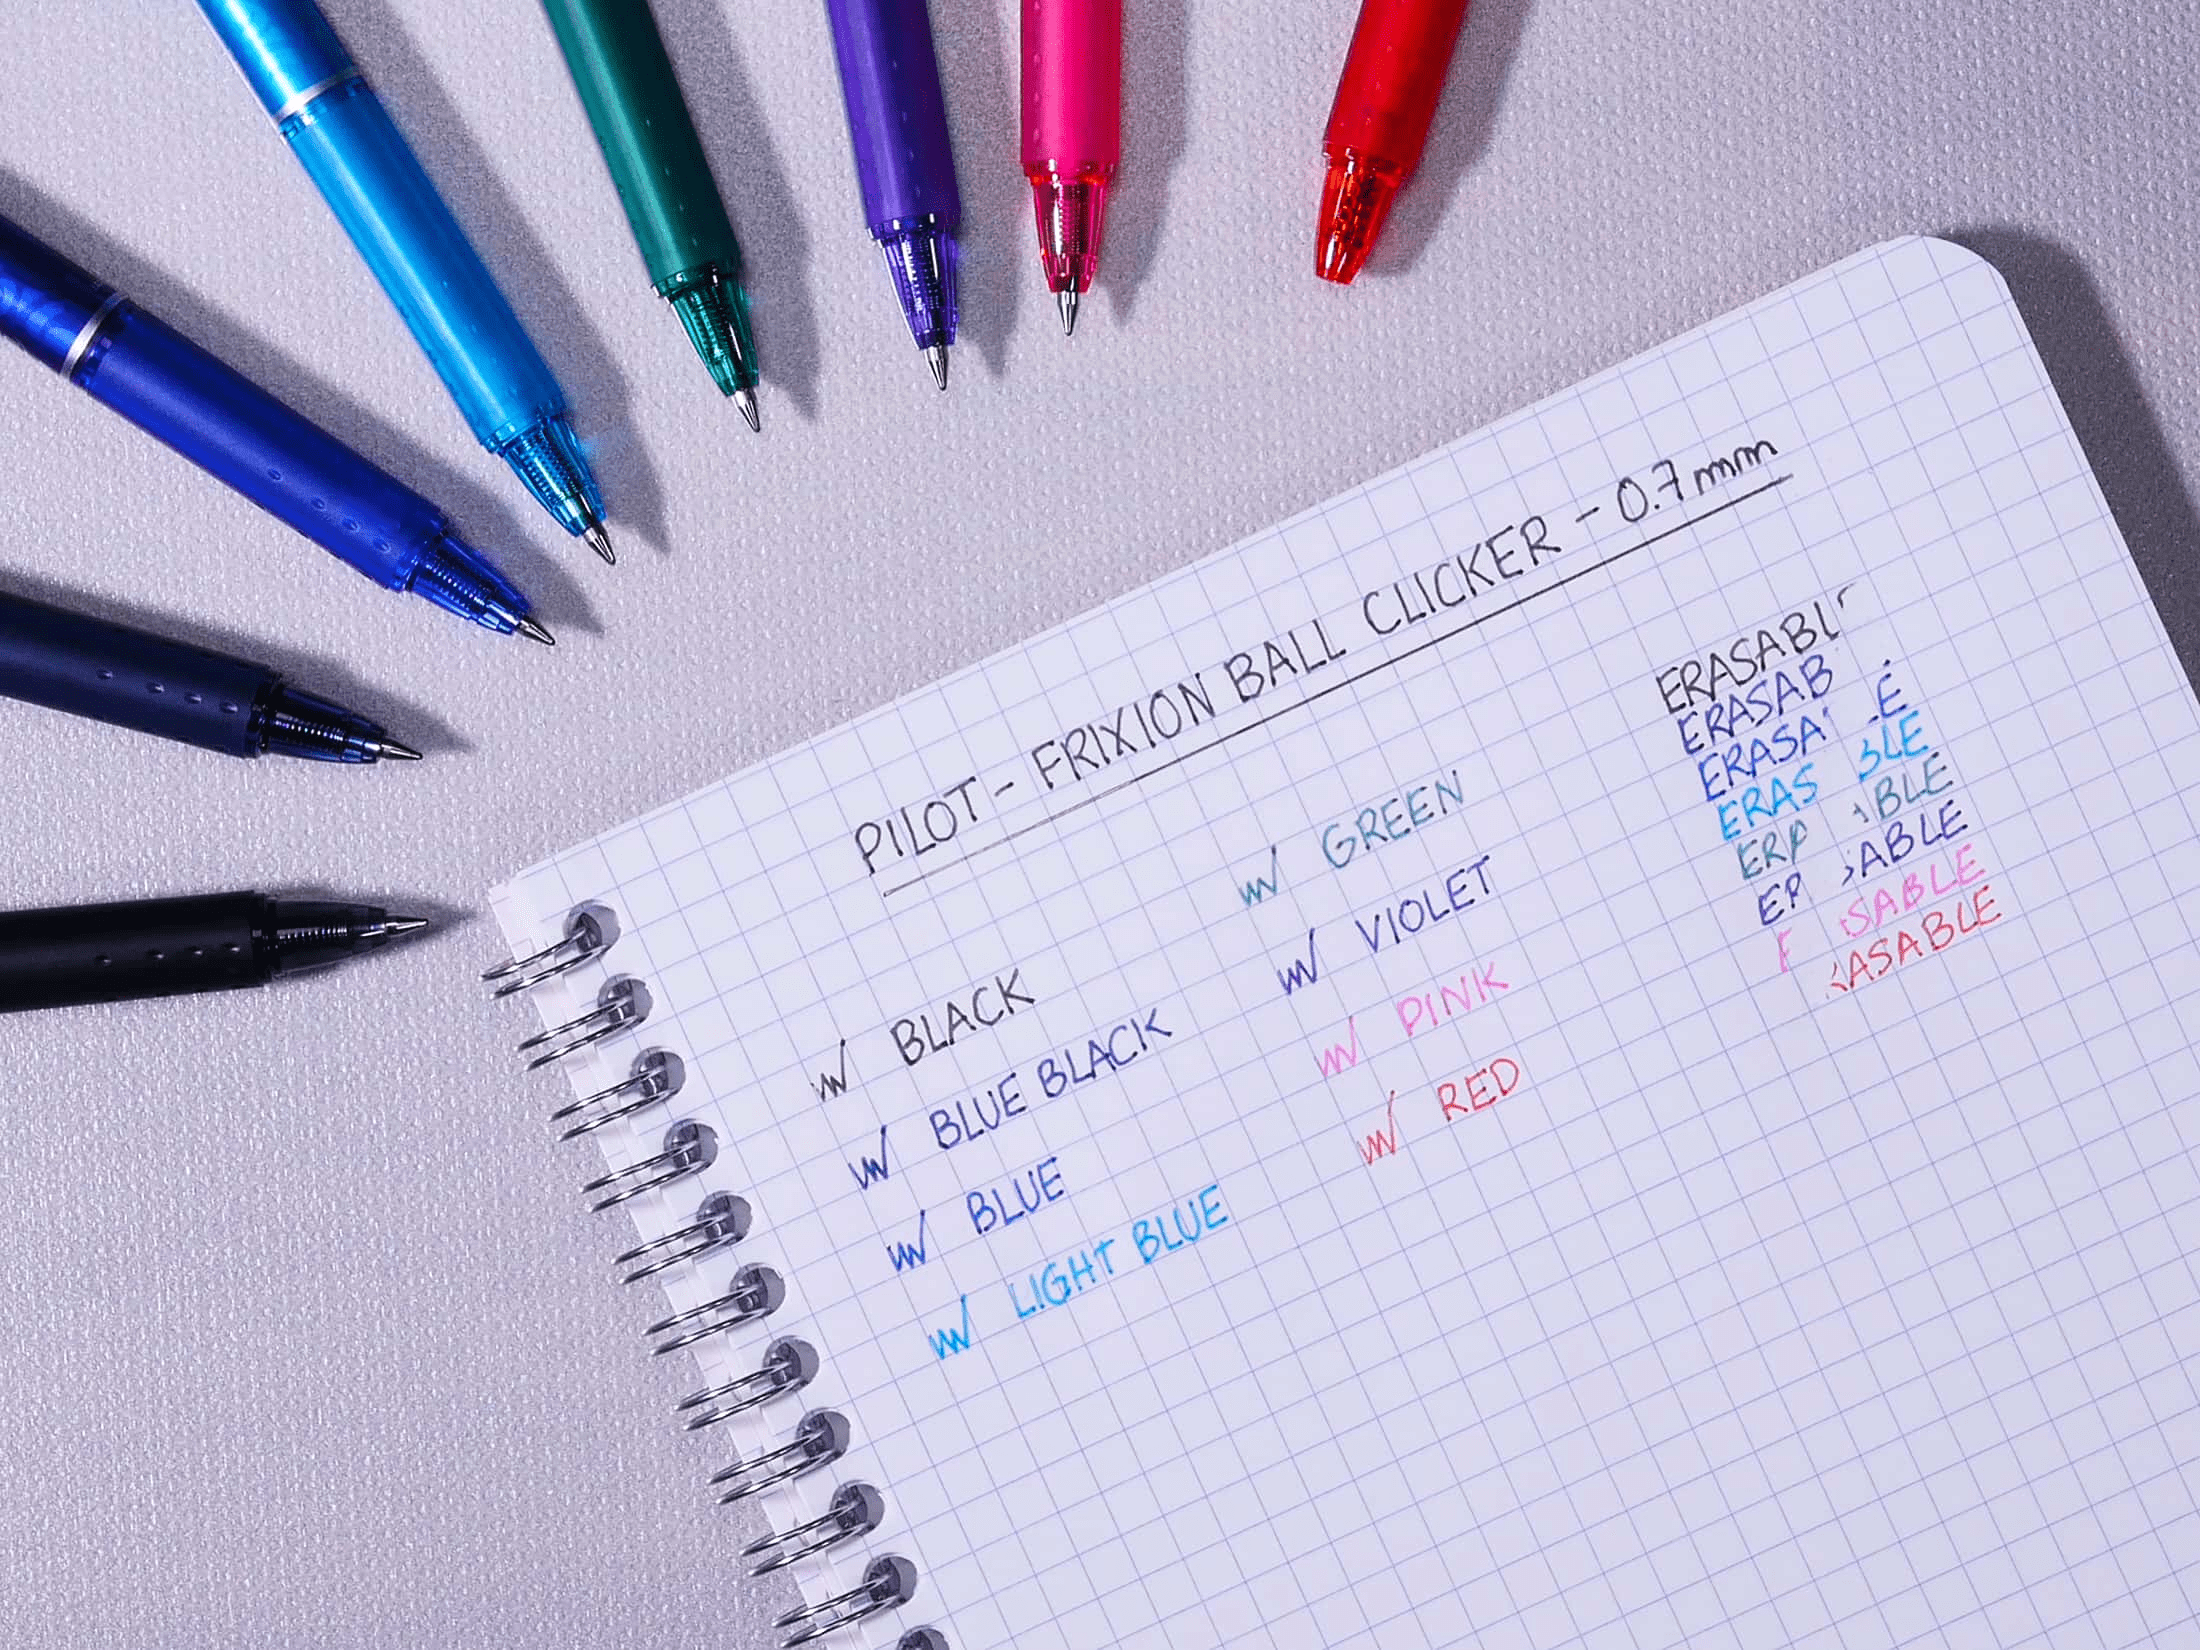 PILOT - FRIXION BALL CLICKER - 0.7mm
BLACK
BLUE BLACK
BLUE
LIGHT BLUE
GREEN
VIOLET
PINK
RED
ERASABL
ERASAB
ERASA E
ERAS BLE
ER ABLE
ER SABLE
SABLE
ASABLE